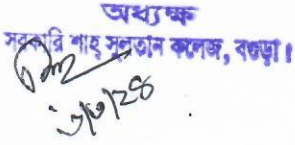 অধ্যক্ষ
সরকারি শাহ্ সুলতান কলেজ, বগুড়া।